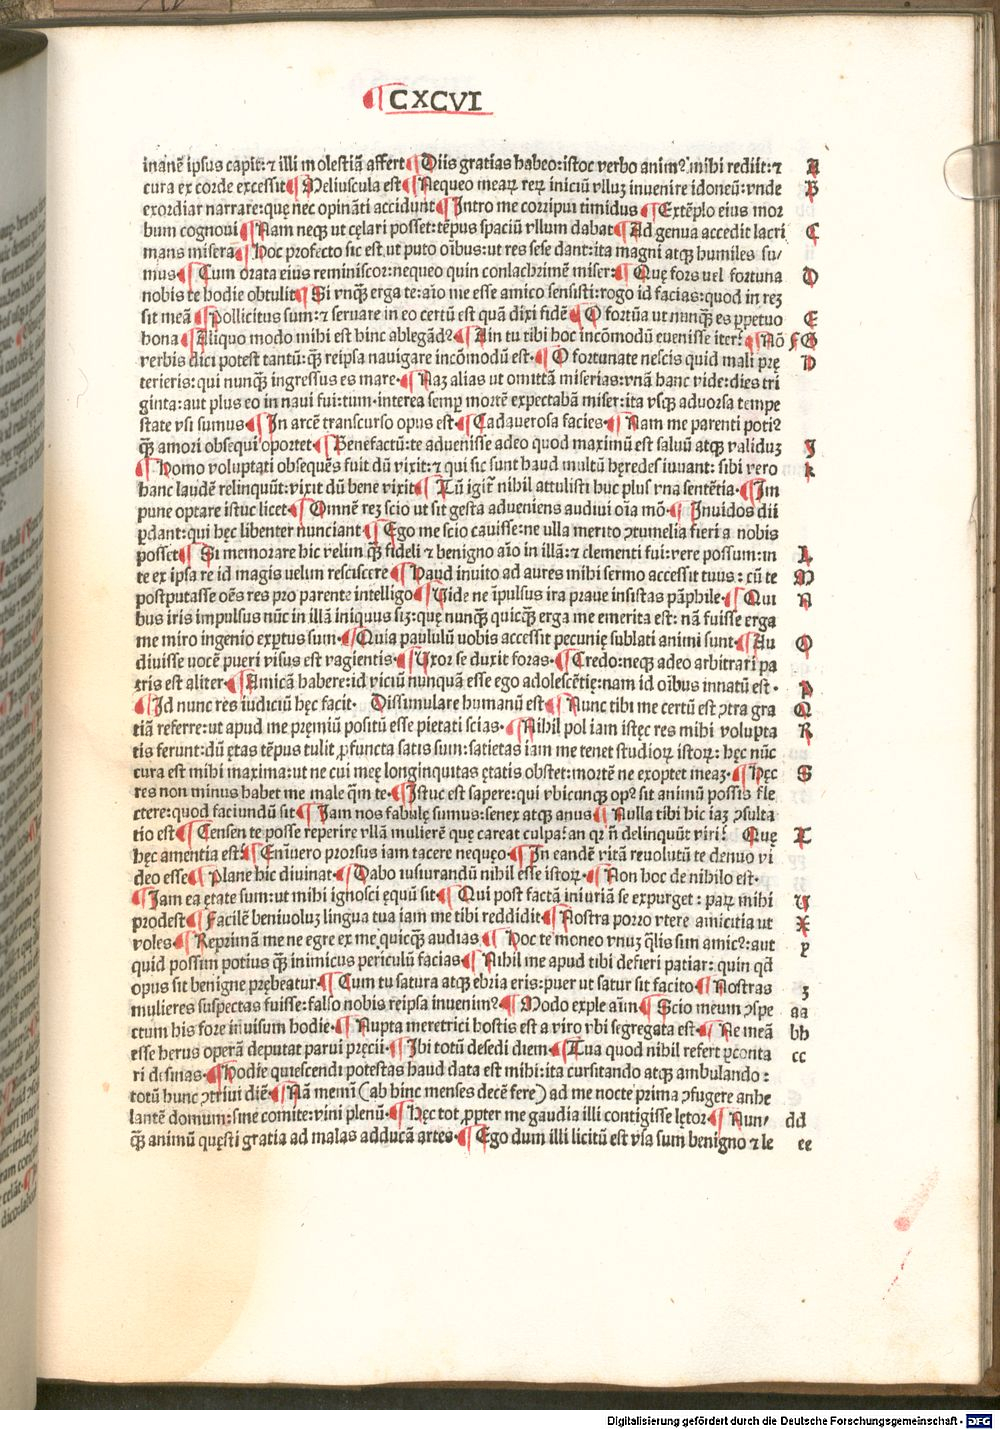 ¶ CXCVI
inanē ipsus capit: ⁊ illi molestiā affert ¶ Diis gratias habeo: istoc verbo animꝰ mihi rediit: ⁊ A
cura ex corde excessit ¶ Meliuscula est ¶ Nequeo meaꝝ reꝝ iniciū vlluꝫ invenire idoneū: vnde B
exordiar narrare: quę nec opināti accidunt ¶ Intro me corripui timidus ¶ Extēplo eius mor
bum cognoui ¶ Nam neqꝫ ut cęlari posset: tēpus spaciū vllum dabat ¶ Ad genua accedit lacri C
mans misera ¶ Hoc profecto sic est ut puto oībus: ut res sese dant: ita magni atqꝫ humiles su/
mus ¶ Cum orata eius reminiscor: nequeo quin conlachrimē miser: ¶ Quę fors uel fortuna D
nobis te hodie obtulit ¶ Si vnqꝫ̄ erga te: aīo me esse amico sensisti: rogo id facias: quod in reꝫ
sit meā ¶ Pollicitus sum: ⁊ seruare in eo certū est quā dixi fidē ¶ O fortūa ut nunqꝫ̄ es ꝑpetuo E
bona ¶ Aliquo modo mihi est hinc ablegādꝰ ¶ Ain tu tibi hoc incōmodū euenisse iter? ¶ Nō F G
verbis dici potest tantū: qꝫ̄ reipsa nauigare incōmodū est · ¶ O fortunate nescis quid mali prę H
terieris: qui nunqꝫ̄ ingressus es mare · ¶ Naꝫ alias ut omittā miserias: vnā hanc vide: dies tri
ginta: aut plus eo in navi fui: tum · interea semꝑ mortē expectabā miser: ita vsqꝫ aduorsa tempe
state vsi sumus ¶ In arcē transcurso opus est ¶ Cadauerosa facies ¶ Nam me parenti potiꝰ
qꝫ̄ amori obsequi oportet ¶ Benefactū: te aduenisse adeo quod maximū est saluū atqꝫ validuꝫ J
¶ Homo voluptati obsequēs fuit dū vixit: ⁊ qui sic sunt haud multū hęredes iuvant: sibi vero K
hanc laudē relinquūt: vixit dū bene vixit ¶ Tū igit nihil attulisti huc plus vna sentētia · ¶ Im
pune optare istuc licet ¶ Omnē reꝫ scio ut sit gesta adveniens audiui oīa mō · ¶ Inuidos dii
ꝑdant: qui hęc libenter nunciant ¶ Ego me scio cauisse: ne ulla merito ꝯtumelia fieri a nobis
posset ¶ Si memorare hic velim qꝫ̄ fideli ⁊ benigno aīo in illā: ⁊ clementi fui: vere possum: in L
te ex ipsa re id magis uelum resciscere ¶ Haud invito ad aures mihi sermo accessit tuus: cū te M
postputasse oēs res pro parente intelligo ¶ Uide ne īpulsus ira praue insistas pāphile · ¶ Qui N
bus iris impulsus nūc in illā iniquus siꝫ: quę nunqꝫ̄ quicqꝫ̄ erga me emerita est: nā fuisse erga
me miro ingenio exꝑtus sum · ¶ Quia paululū uobis accessit pecunię sublati animi sunt ¶ Au O
diuisse uocē pueri visus est vagientis · ¶ Uxor se duxit foras · ¶ Credo: neqꝫ adeo arbitrari pa
tris est aliter ¶ Amicā habere: id viciū nunquā esse ego adolescētię: nam id oībus innatū est · P
¶ Id nunc res iudiciū hęc facit · Dissimulare humanū est ¶ Nunc tibi me certū est ꝯtra gra Q
tiā referre: ut apud me pręmiū positū esse pietati scias · ¶ Nihil pol iam istęc res mihi volupta R
tis ferunt: dū ętas tēpus tulit ꝓfuncta satis sum: satietas iam me tenet studioꝝ istoꝝ: hęc nūc
cura est mihi maxima: ut ne cui meę longinquitas ętatis obstet: mortē ne exoptet meaꝫ · ¶ Hęc S
res non minus habet me male qm̄ te · ¶ Istuc est sapere: qui vbicunqꝫ opꝰ sit animū possis fle
ctere: quod faciundū sit ¶ Iam nos fabulę sumus: senex atqꝫ anus ¶ Nulla tibi hic iaꝫ ꝯsulta
tio est ¶ Censen te posse reperire vllā mulierē quę careat culpa? an qꝛ nō delinquūt viri? Quę T
hęc amentia est? ¶ Enīuero prorsus iam tacere nequeo ¶ In eandē vitā reuolutū te denuo vi
deo esse ¶ Plane hic divinat ¶ Dabo iusiurandū nihil esse istoꝝ · ¶ Non hoc de nihilo est ·
¶ Iam ea ętate sum: ut mihi ignosci ęquū sit ¶ Qui post factā iniuriā se expurget: paꝝ mihi U
prodest ¶ Facilē benivoluꝫ lingua tua iam me tibi reddidit ¶ Nostra porro vtere amicitia ut X
voles ¶ Reprimā me ne egre ex me quicqꝫ̄ audias ¶ Hoc te moneo vnuꝫ qꝉis sim amicꝰ: aut y
quid possim potius qꝫ̄ inimicus periculū facias ¶ Nihil me apud tibi defieri patiar: quin qđ
opus sit benigne prębeatur ¶ Cum tu satura atqꝫ ebria eris: puer ut satur sit facito ¶ Nostras z
mulieres suspectas fuisse: falso nobis reipsa invenimꝰ ¶ Modo exple aīm ¶ Scio meum ꝯspe aa
ctum his fore inuisum hodie · ¶ Nupta meretrici hostis est a viro vbi segregata est · ¶ Ne meā bb
esse herus operā deputat parui pręcii · ¶ Ibi totū desedi diem ¶ Tua quod nihil refert ꝑconta cc
ri desinas · ¶ Hodie quiescendi potestas haud data est mihi: ita cursitando atqꝫ ambulando:
totū hunc ꝯtriui diē ¶ Nā memī (ab hinc menses decē fere) ad me nocte prima ꝯfugere anhe
lantē domum: sine comite: vini plenū · ¶ Hęc tot ꝓpter me gaudia illi contigisse lętor ¶ Nun/ dd
qꝫ̄ animū quęsti gratia ad malas adducā artes · ¶ Ego dum illi licitū est vsa sum benigno ⁊ le ee
Digitalisierung gefördert durch die Deutsche Forschungsgemeinschaft · DFG